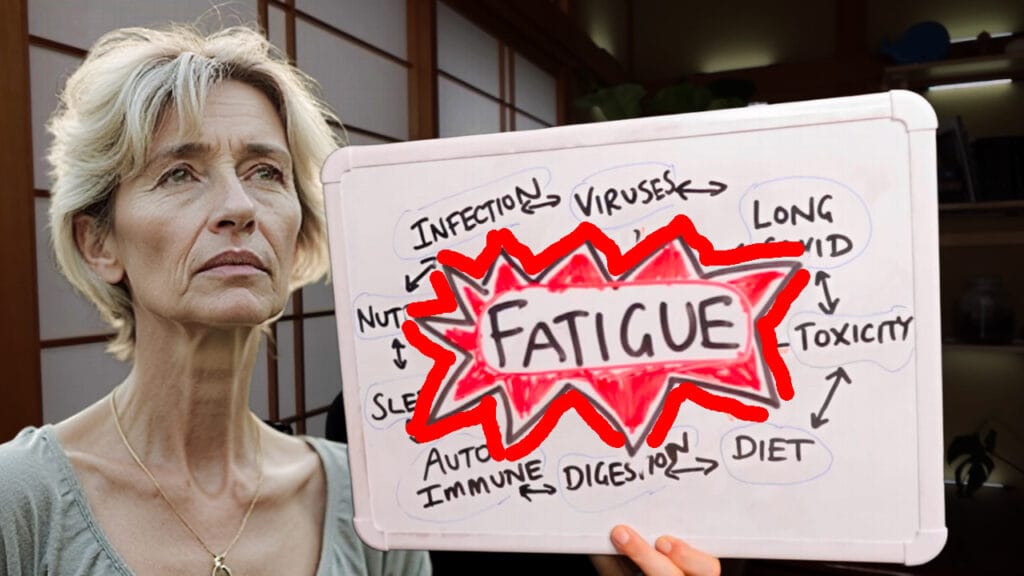 INFECTION
VIRUSES
LONG
COVID
NUT
FATIGUE
TOXICITY
SLE
AUTO
IMMUNE
DIGESTION
DIET